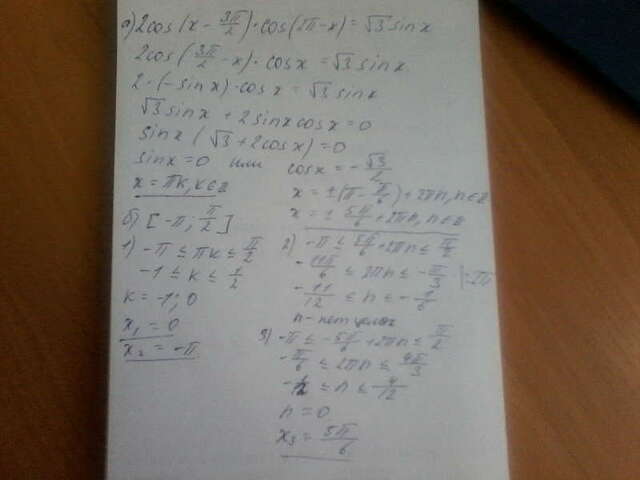 а) 2cos(x - 3π/2)·cos(2π-x) = √3 sinx
2cos(3π/2 - x)·cosx = √3 sinx
2·(-sinx)·cosx = √3 sinx
√3 sinx + 2sinxcosx = 0
sinx(√3 + 2cosx) = 0
sinx = 0 или cosx = -√3/2
x = πk, k∈Z
x = ±(π - π/6) + 2πn, n∈Z
x = ± 5π/6 + 2πn, n∈Z
б) [-π; π/2]
1) -π ≤ πk ≤ π/2
-1 ≤ k ≤ 1/2
k = -1; 0
x₁ = 0
x₂ = -π
2) -π ≤ 5π/6 + 2πn ≤ π/2
-11π/6 ≤ 2πn ≤ -π/3 |:2π
-11/12 ≤ n ≤ -1/6
n - нет целых
3) -π ≤ -5π/6 + 2πn ≤ π/2
-π/6 ≤ 2πn ≤ 4π/3
≤ n ≤ 4/12
n = 0
x₃ = 5π/6